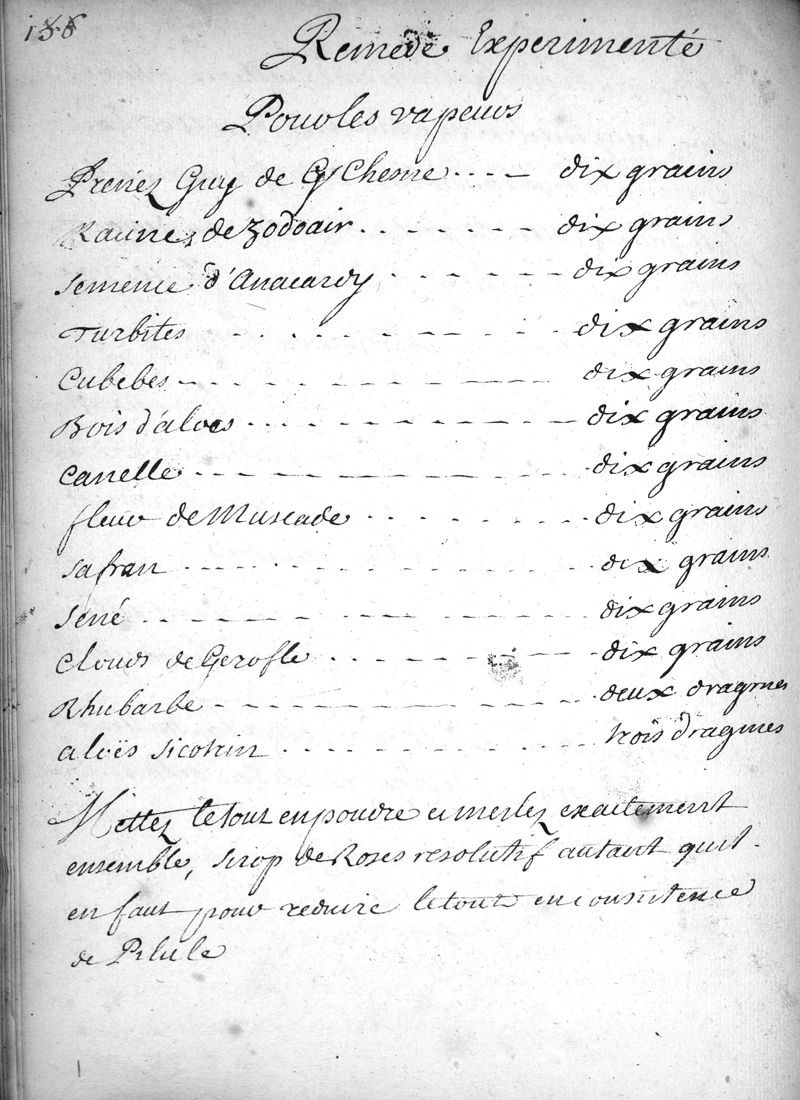 158
Remede Experimenté
Pour les vapeurs
Prenez Guy de Chesne dix grains
Racines de zodoair dix grains
semence d'Anacardy dix grains
Turbites dix grains
Cubebes dix grains
Bois d'aloes dix grains
Canelle dix grains
fleur de Muscade dix grains
safran dix grains
sené dix grains
Clouds de Gerofle dix grains
Rhubarbe deux dragmes
aloës sicotrin trois dragmes
Mettez le tout en poudre et meslez exactement
ensemble, sirop de Roses resolutif autant quil
en faut pour reduire le tout en consistence
de Pilule